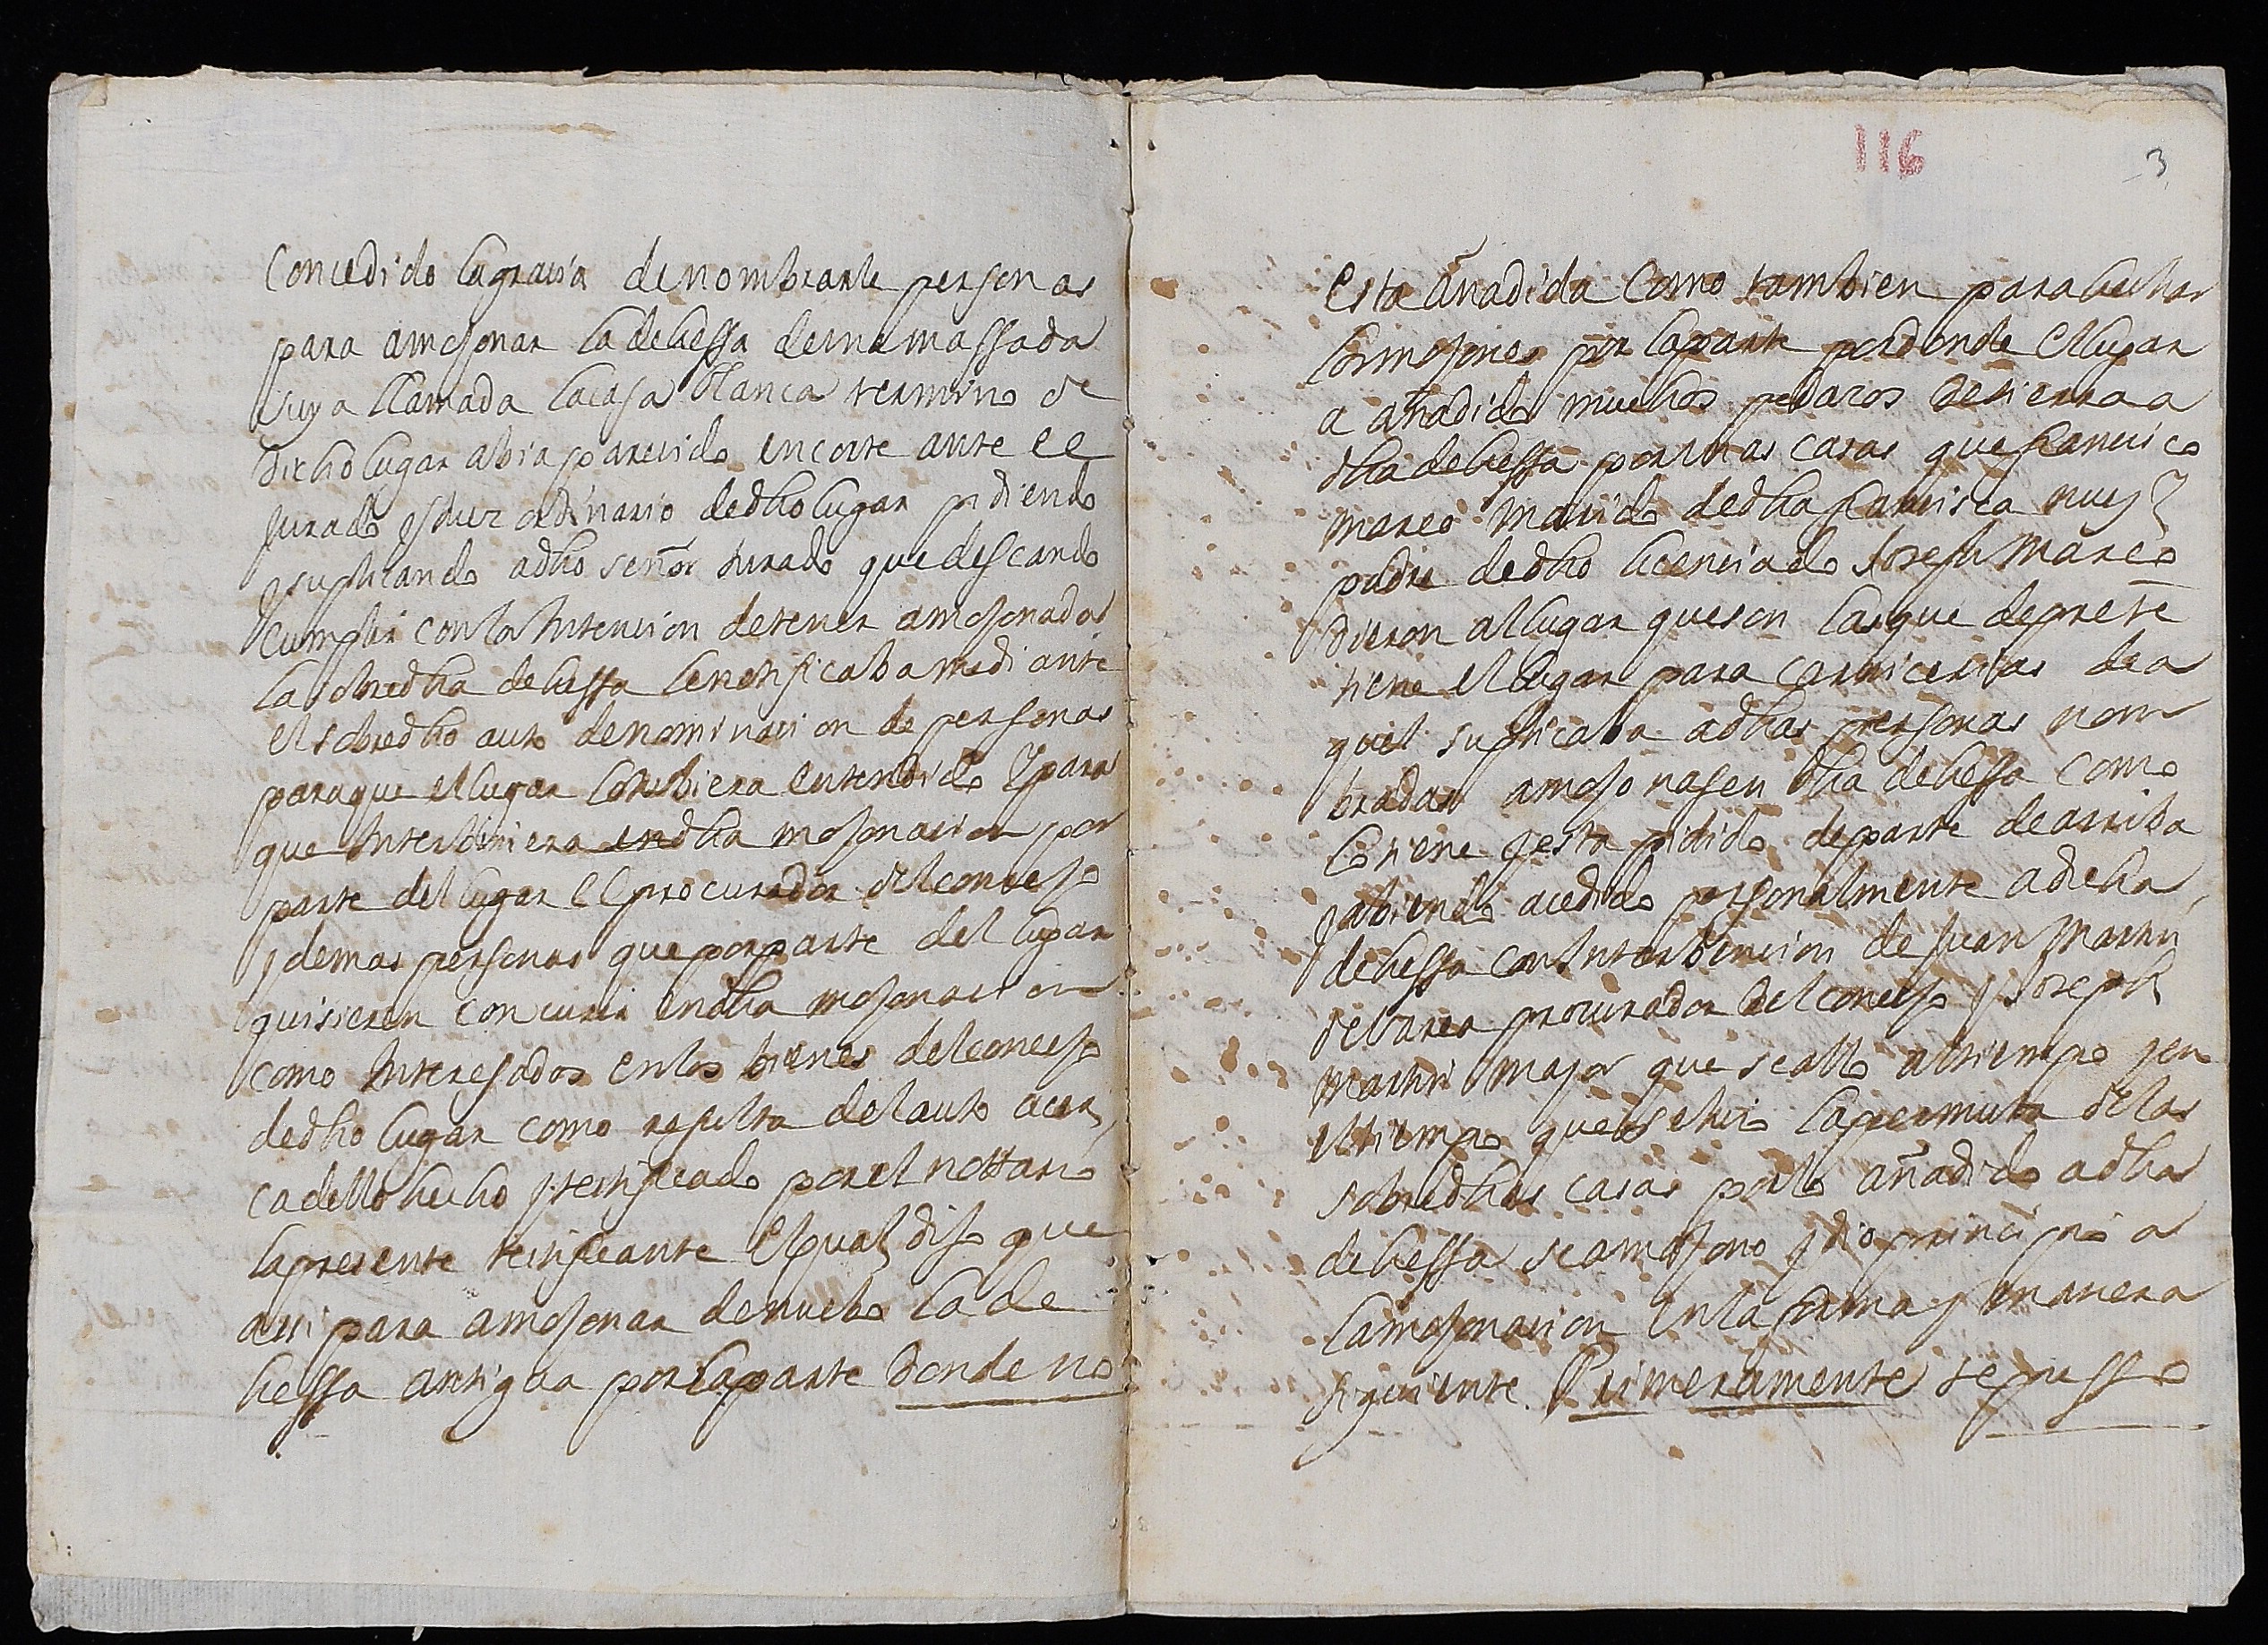 Concedido la gracia de nombrarle personas
para amojonar la dehessa de una massada
suya llamada la casa blanca termino de
dicho lugar abia parecido en corte ante el
Jurado y Juez ordinario de dho lugar pidiendo
y suplicando a dho señor Jurado que deseando
cumplir con la Intencion de tener amojonados
la sobredha dehessa le notificaba mediante
el sobredho auto de nominacion de personas
para que el lugar lo tubiera entendido y para
que Interbiniera en dha mojonacion por
parte del lugar el procurador del concejo
y demas personas que por parte del lugar
quisieren concurir en dha mojonacion
como Interesados en los bienes del concejo
de dho lugar como resulta del auto acer
ca dello hecho y testificado por el nottario
la presente testificante el qual dijo que
assi para amojonar de nuebo la de
hessa antigua por la parte donde no
116
3
Esta añadida como tambien para hechar
los mojones por la parte por donde el lugar
a añadido muchos pedazos de tierra a
dha dehessa por unas casas que francisco
mareo marido de dha francisca
padre de dho licenciado Joseph Mareo
dieron al lugar que son las que de prese
tiene el lugar para carnicerias de a
quel suplicaba a dhas personas nom
bradas amojonasen dha dehessa como
lo tiene y esta pidido de parte de arriba
y abiendo acedido personalmente a dicha
dehessa con Interbencion de Juan Martin
procurador del concejo y Joseph
Martin major que se allo al tiempo y en
el tiempo que se hizo la permuta de las
sobredhas casas por lo añadido a dha
dehessa se amojono y dio principio a
la mojonacion en la forma y manera
siguiente. Primeramente se pusso